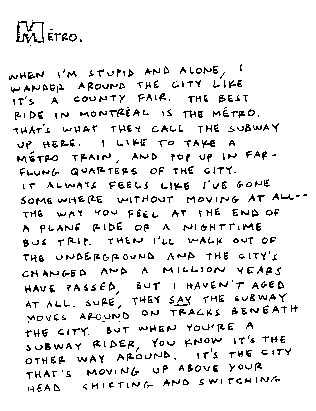 MÉTRO.
WHEN I'M STUPID AND ALONE, I
WANDER AROUND THE CITY LIKE
IT'S A COUNTY FAIR. THE BEST
RIDE IN MONTRÉAL IS THE MÉTRO.
THAT'S WHAT THEY CALL THE SUBWAY
UP HERE. I LIKE TO TAKE A
MÉTRO TRAIN, AND POP UP IN FAR-
FLUNG QUARTERS OF THE CITY.
IT ALWAYS FEELS LIKE I'VE GONE
SOMEWHERE WITHOUT MOVING AT ALL--
THE WAY YOU FEEL AT THE END OF
A PLANE RIDE OR A NIGHTTIME
BUS TRIP. THEN I'LL WALK OUT OF
THE UNDERGROUND AND THE CITY'S
CHANGED AND A MILLION YEARS
HAVE PASSED, BUT I HAVEN'T AGED
AT ALL. SURE, THEY SAY THE SUBWAY
MOVES AROUND ON TRACKS BENEATH
THE CITY. BUT WHEN YOU'RE A
SUBWAY RIDER, YOU KNOW IT'S THE
OTHER WAY AROUND. IT'S THE CITY
THAT'S MOVING UP ABOVE YOUR
HEAD SHIFTING AND SWITCHING